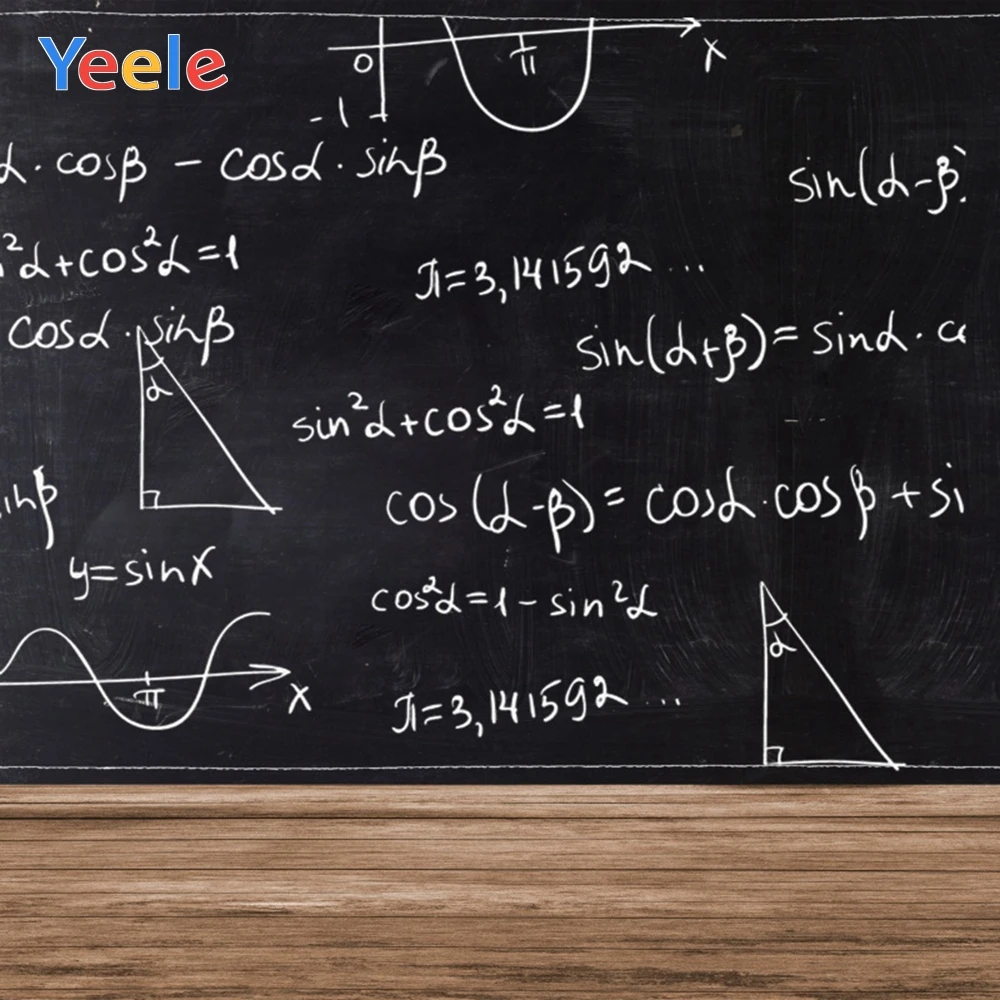 Yeele
0
π
x
-1
α · cosβ - cosα · sinβ
sin(α-β)
²α+cos²α=1
π=3,141592 ...
cosα · sinβ
sin(α+β)= sinα · c
α
sin²α+cos²α=1
inβ
cos(α-β)= cosα·cosβ + si
y=sinx
cos²α=1-sin²α
α
π
x
π=3,141592 ...